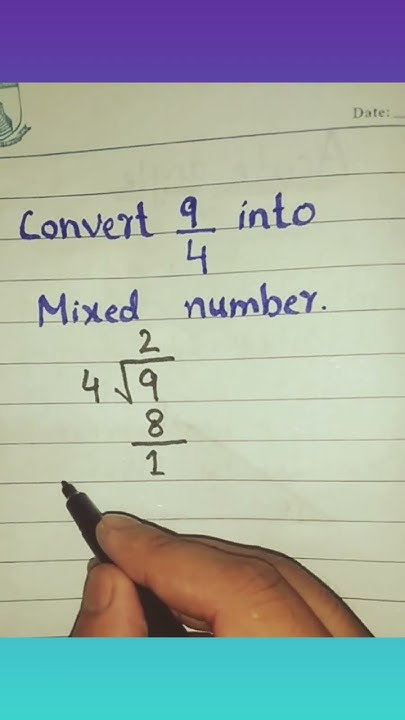 Date:
Convert 9/4 into
Mixed number.
2
4√9
8
1